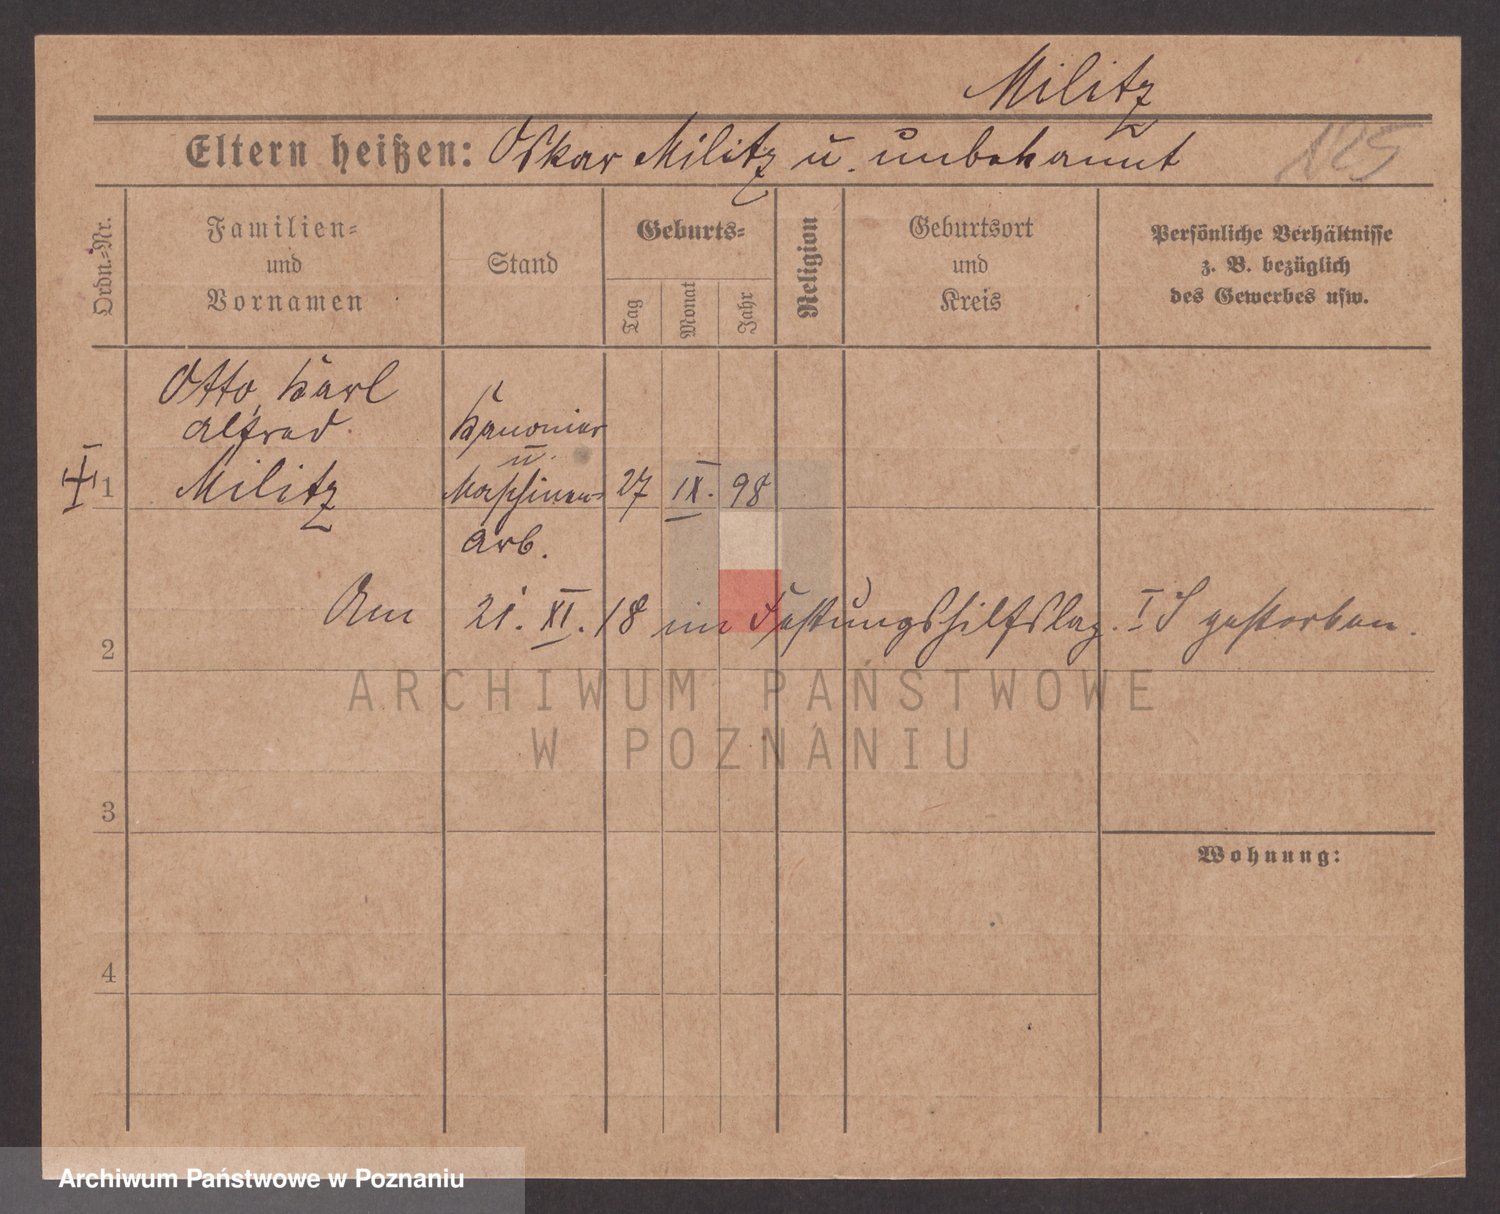 Militz
Eltern heißen: Oskar Militz u. unbekannt
125
Ordn.-Nr.
Familien-
und
Vornamen
Stand
Geburts-
Tag
Monat
Jahr
Religion
Geburtsort
und
Kreis
Persönliche Verhältnisse
z. B. bezüglich
des Gewerbes usw.
Otto, Karl
Alfred
Militz
Kanonier
u.
Maschinen-
arb.
1
27 IX. 98
Am 21. XI. 18 im Festungshilfslaz. I gestorben.
2
ARCHIWUM PAŃSTWOWE
W POZNANIU
3
Wohnung:
4
Archiwum Państwowe w Poznaniu